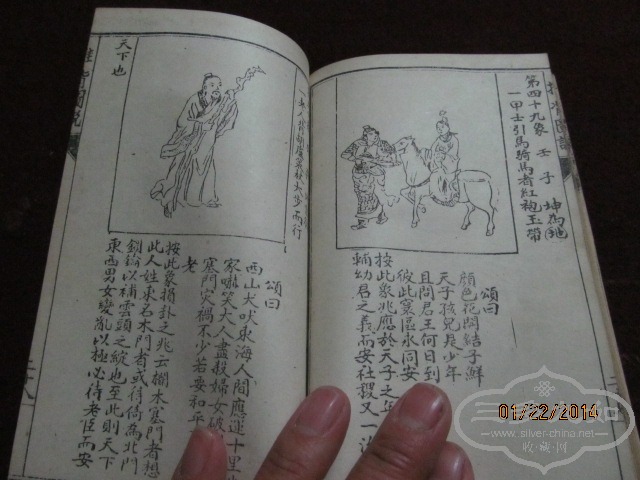 第四十九象 壬子 坤為地
一甲士引馬騎馬者紅袍玉帶
頌曰
顏色花開結子鮮
天子孩兒是少年
且問君王何日到
彼此寰區永同安
按此象兆應於天子之年
輔幼君之義而安社稷又一說
一老人
大步而行
頌曰
西山犬吠東海人間應運十里
家嘯笑大人盡殺婦女破
塞門災禍不少若要和平
老
按此象揖卦之兆云
木塞門者想
此人姓東石木門者或待倚為北門
鎖鑰以補雲頭之綻也至此則天下
東西男女變亂以極必待老臣而安
天下也
推背圖說
01/22/2014
www.silver-china.net
收·藏·网